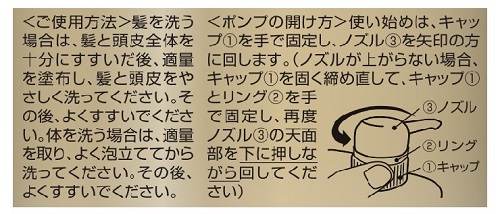 ＜ご使用方法＞髪を洗う
場合は、髪と頭皮全体を
十分にすすいだ後、適量
を塗布し、髪と頭皮をや
さしく洗ってください。そ
の後、よくすすいでくださ
い。体を洗う場合は、適量
を取り、よく泡立ててから
洗ってください。その後、
よくすすいでください。
＜ポンプの開け方＞使い始めは、キャッ
プ①を手で固定し、ノズル③を矢印の方
に回します。（ノズルが上がらない場合、
キャップ①を固く締め直して、キャップ①
とリング②を手
で固定し、再度
ノズル③の天面
部を下に押しな
がら回してくだ
さい）
③ノズル
②リング
①キャップ